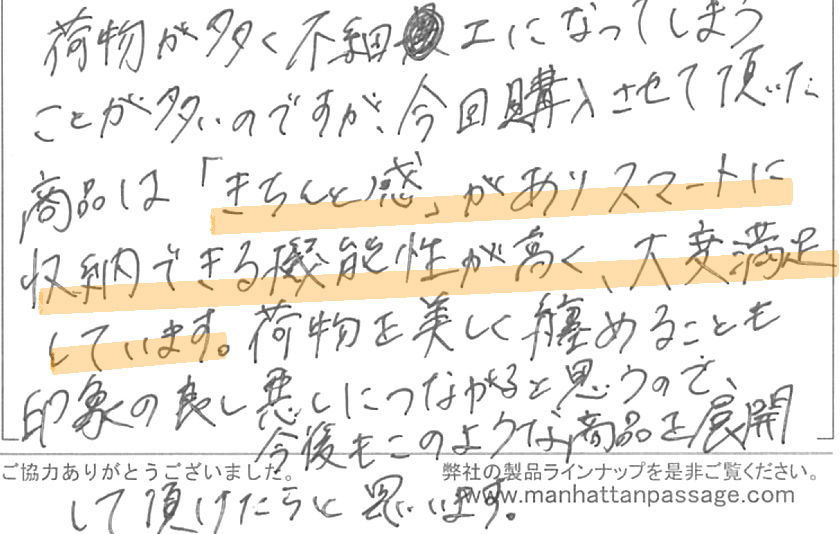 荷物が多く不細工になってしまう
ことが多いのですが、今回購入させて頂いた
商品は「きちんと感」がありスマートに
収納できる機能性が高く、大変満足
しています。荷物を美しく纏めることも
印象の良し悪しにつながると思うので、
今後もこのような商品を展開
ご協力ありがとうございました。
弊社の製品ラインナップを是非ご覧ください。
www.manhattanpassage.com
して頂けたらと思います。